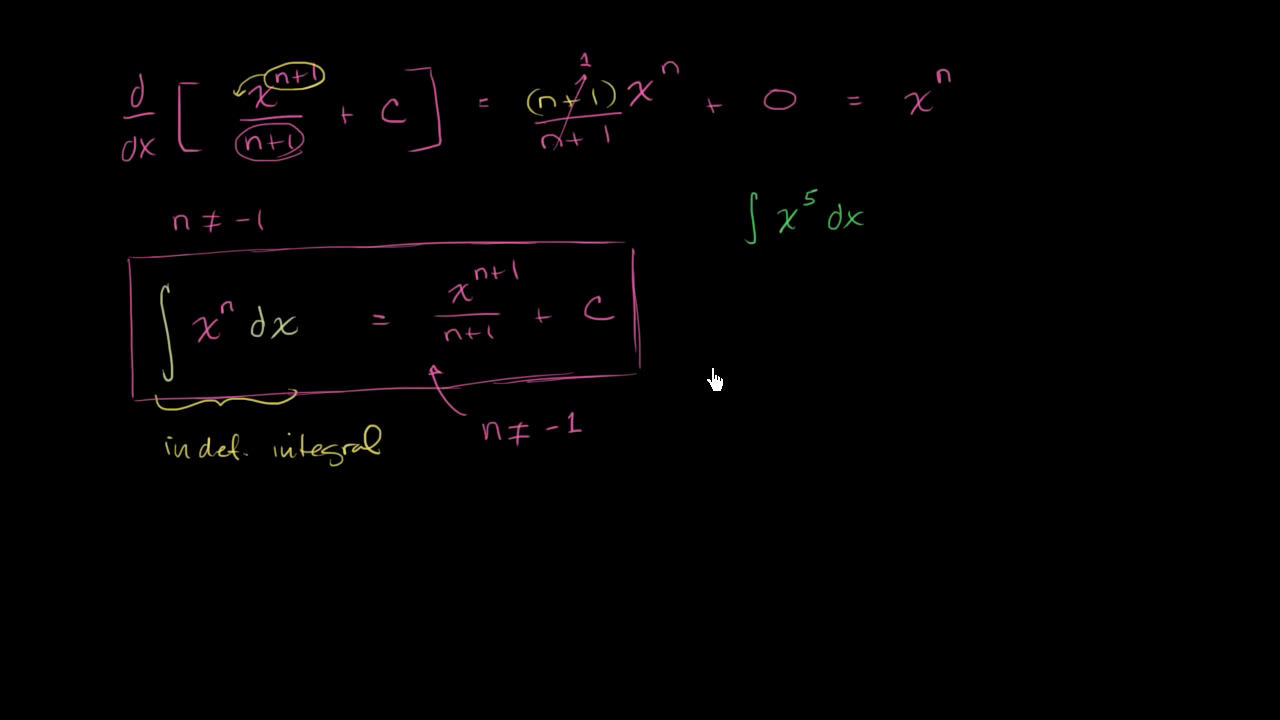 d/dx [ x^(n+1)/(n+1) + C ] = (n+1)x^n/(n+1) + 0 = x^n
1
n ≠ -1
∫ x^5 dx
∫ x^n dx = x^(n+1)/(n+1) + C
n ≠ -1
indef. integral